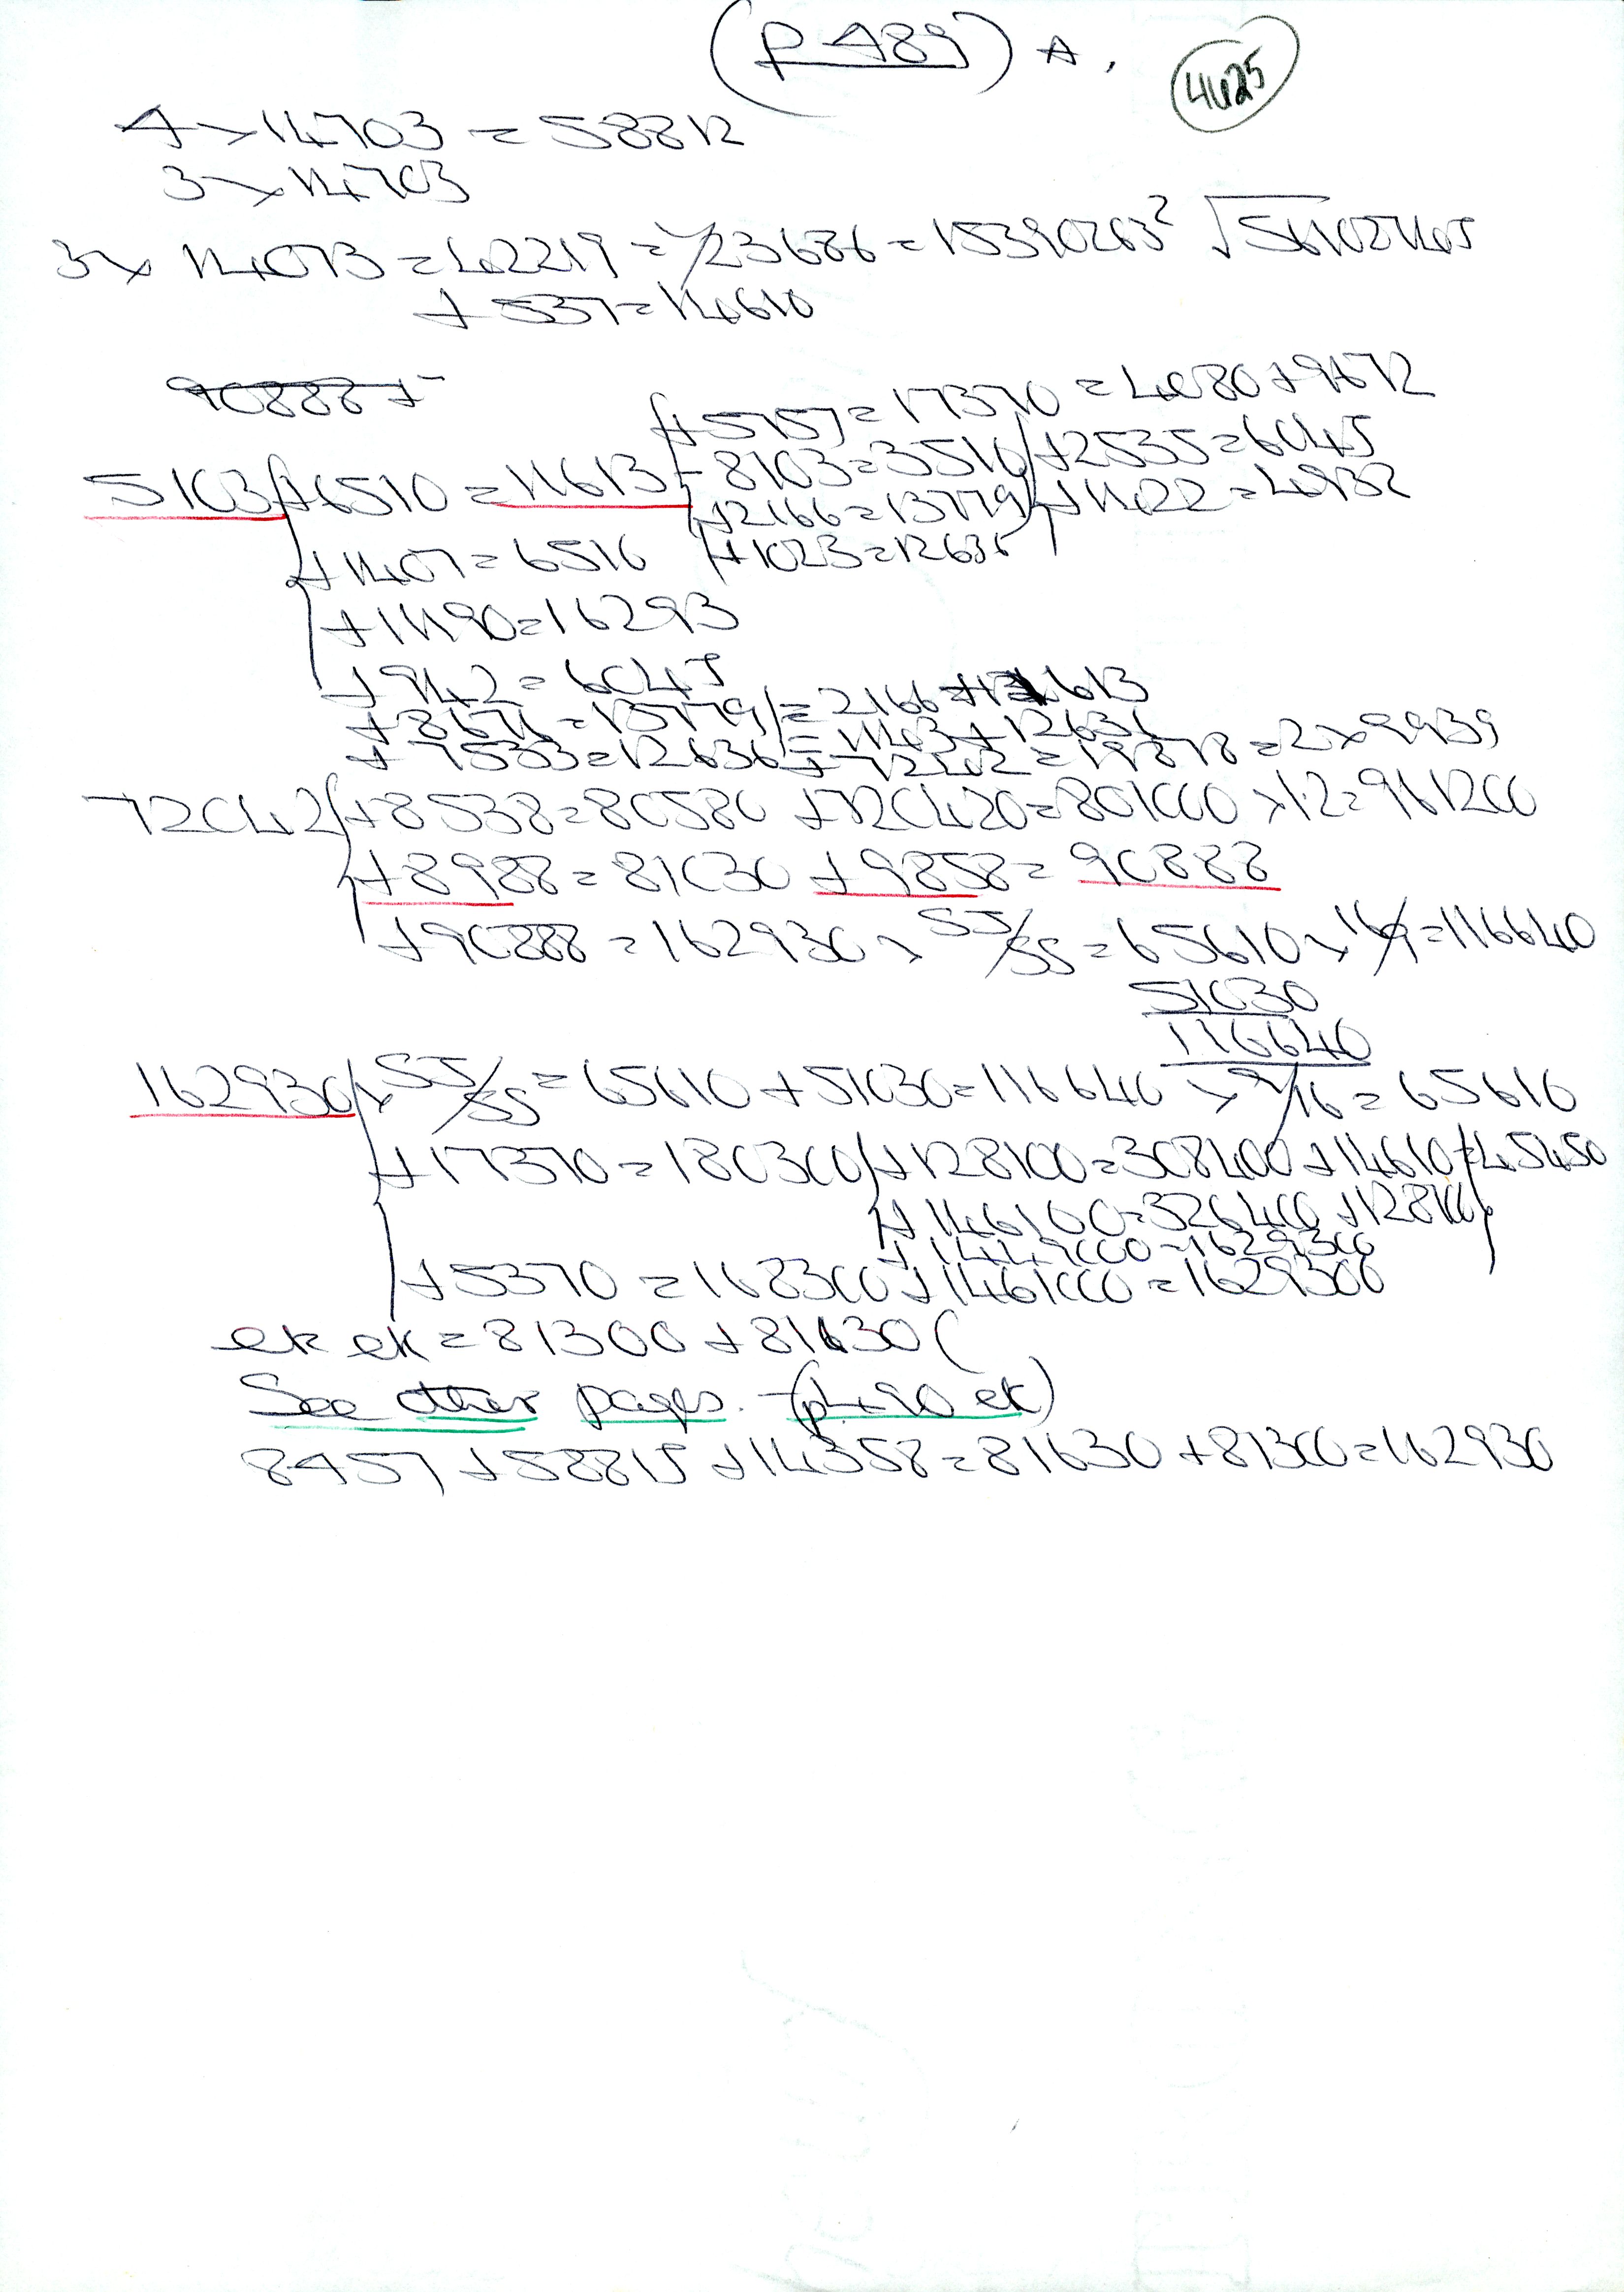 (p 489) A.
4425
4 × 14703 = 58812
3 × 14703
3 × 14073 = 42219 = 1/23686 = 15390263² √561027145
+ 537 = 14610
90888 +
+ 5757 = 17370 = 4080 + 9612
- 8103 = 3510 + 2535 = 6045
5103 + 6510 = 11613
+ 2166 = 13779 + 1422 = 4932
+ 1407 = 6510 + 1023 = 12636
+ 11190 = 16293
+ 942 = 6045
+ 8676 = 13779 = 2166 + 11613
+ 7533 = 12636 = + 7242 = 19878 = 2 × 9939
72042 + 8538 = 80580 + 720420 = 801000 × 1.2 = 961200
+ 8988 = 81030 + 9858 = 90888
+ 90888 = 162930 × = 65610 × 16/9 = 116640
51030
116640
162930 × = 65610 + 51030 = 116640 × 9/16 = 65610
+ 17370 = 180300 + 128100 = 308400 + 14610 = 45450
+ 146100 = 326400 + 128100
+ 1449000 = 1629300
+ 5370 = 168300 + 1461000 = 1629300
ek ek = 81300 + 81630 (
See other pages. - (p490 ek)
8457 + 58815 + 14358 = 81630 + 81300 = 162930